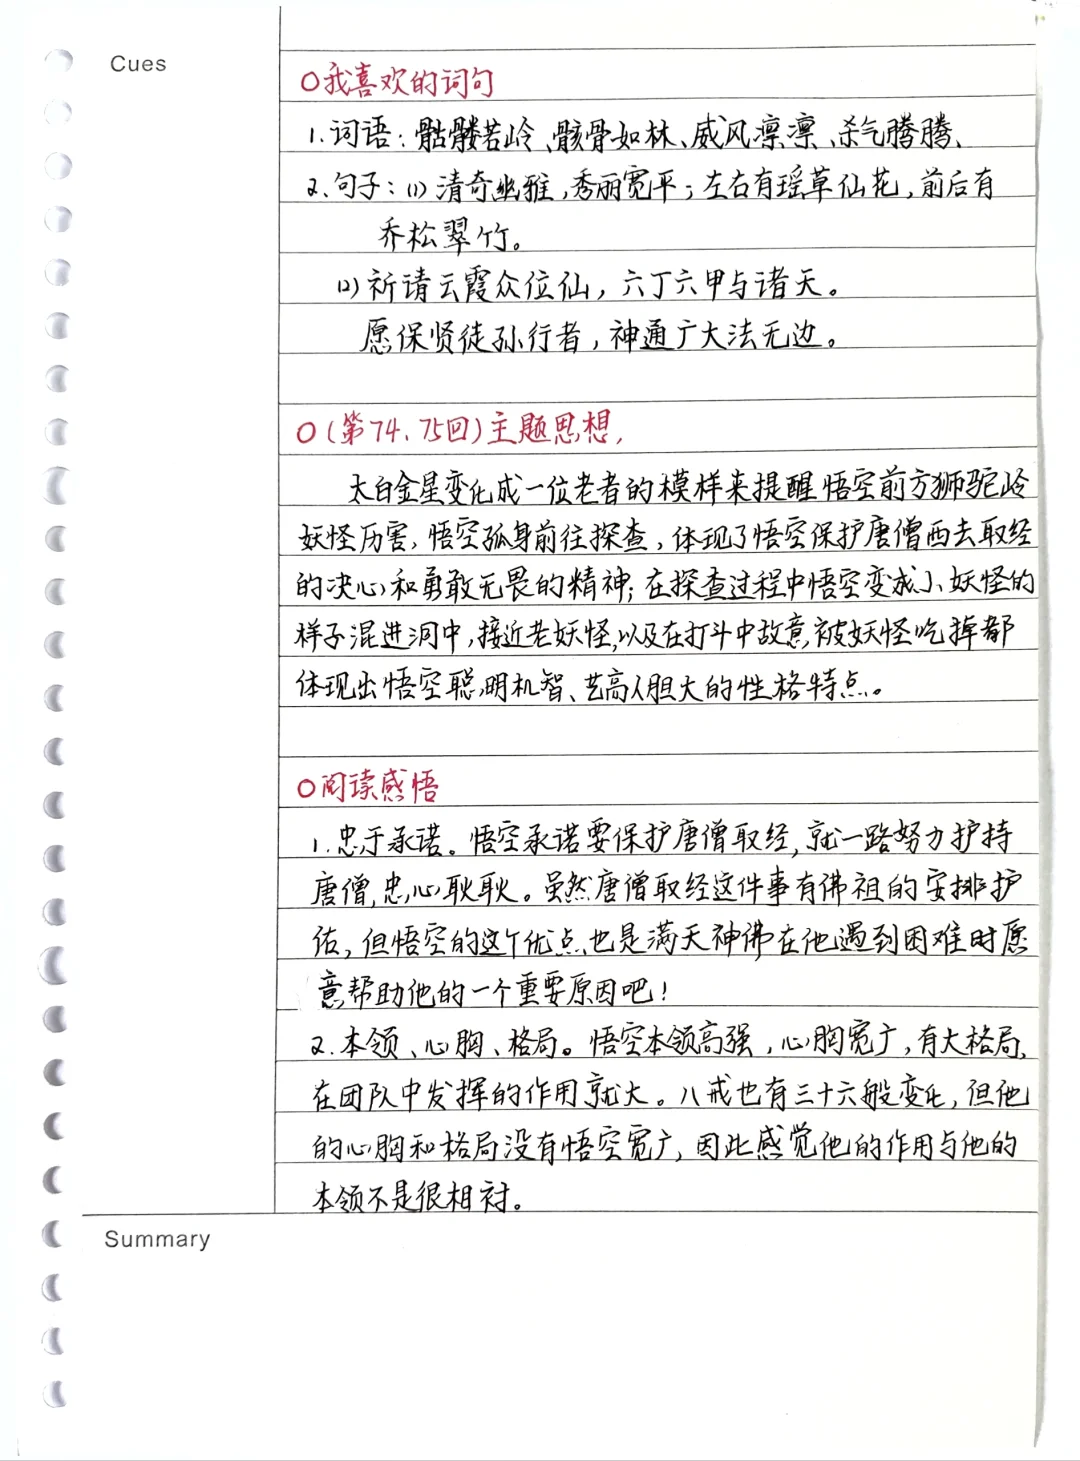 Cues
○我喜欢的词句
1.词语：骷髅若岭、骸骨如林、威风凛凛、杀气腾腾、
2.句子：(1)清奇幽雅，秀丽宽平；左右有瑶草仙花，前后有
乔松翠竹。
(2)祈请云霞众位仙，六丁六甲与诸天。
愿保贤徒孙行者，神通广大法无边。
○(第74、75回)主题思想，
太白金星变化成一位老者的模样来提醒悟空前方狮驼岭
妖怪厉害，悟空孤身前往探查，体现了悟空保护唐僧西去取经
的决心和勇敢无畏的精神；在探查过程中悟空变成小妖怪的
样子混进洞中，接近老妖怪，以及在打斗中故意被妖怪吃掉都
体现出悟空聪明机智、艺高人胆大的性格特点。
○阅读感悟
1.忠于承诺。悟空承诺要保护唐僧取经，就一路努力护持
唐僧，忠心耿耿。虽然唐僧取经这件事有佛祖的安排护
佑，但悟空的这个优点也是满天神佛在他遇到困难时愿
意帮助他的一个重要原因吧！
2.本领、心胸、格局。悟空本领高强，心胸宽广，有大格局，
在团队中发挥的作用就大。八戒也有三十六般变化，但他
的心胸和格局没有悟空宽广，因此感觉他的作用与他的
本领不是很相衬。
Summary